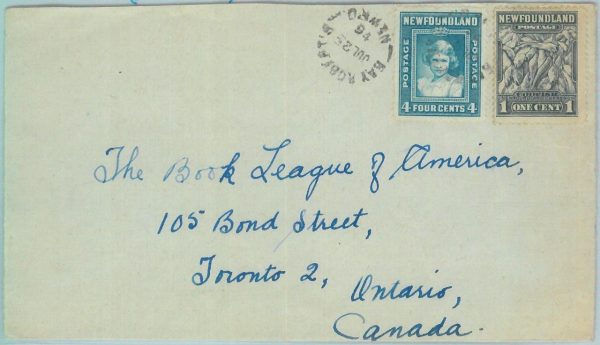 BAY ROBERTS
JUL 25
46
NEWFOUNDLAND
POSTAGE
POSTAGE
4 FOUR CENTS 4
NEWFOUNDLAND
POSTAGE
CODFISH
1 ONE CENT 1
The Book League of America,
105 Bond Street,
Toronto 2,
Ontario,
Canada.